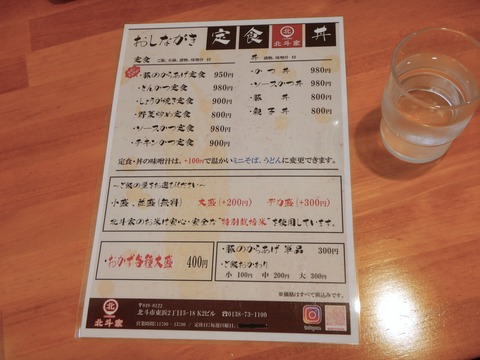 おしながき 定食 北 北斗家 丼
定食 ご飯、小鉢、漬物、味噌汁 付
・豚のからあげ定食 950円
・とんかつ定食 980円
・しょうが焼き定食 900円
・野菜炒め定食 800円
・ソースかつ定食 980円
・チキンかつ定食 900円
丼 漬物、味噌汁 付
・かつ丼 980円
・ソースかつ丼 980円
・豚丼 800円
・親子丼 800円
定食・丼の味噌汁は、+100円で温かいミニそば、うどんに変更できます。
～ご飯の量をお選びください～
小盛、並盛(無料) 大盛(+200円) 平力盛(+300円)
北斗家のお米は安心・安全な"特別栽培米"を使用しています。
・おかず各種大盛 400円
・豚のからあげ 単品 300円
・ご飯おかわり
小 100円 中 200円 大 300円
※価格はすべて税込みです。
北 北斗家
〒049-0122
北斗市東浜2丁目15-18 K2ビル ☎0138-73-1100